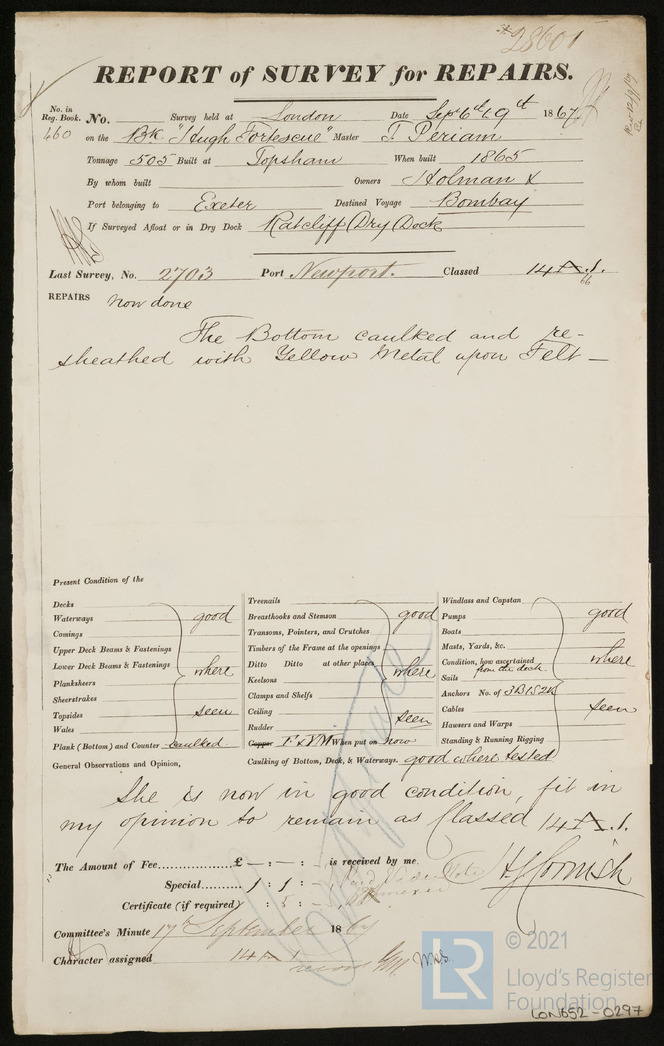 28601
REPORT of SURVEY for REPAIRS.
No. in
Reg. Book.
460
No. Survey held at London Date Sepr 6th & 9th 1867
on the Bk "Hugh Fortescue" Master T. Periam
Tonnage 505 Built at Topsham When built 1865
By whom built Owners Holman &
Port belonging to Exeter Destined Voyage Bombay
If Surveyed Afloat or in Dry Dock Ratcliff Dry Dock
Last Survey, No. 2703 Port Newport. Classed 14 A.1.
66
REPAIRS now done
The Bottom caulked and re-
sheathed with Yellow Metal upon Felt —
Present Condition of the
Decks
Waterways good
Comings
Upper Deck Beams & Fastenings
Lower Deck Beams & Fastenings where
Planksheers
Sheerstrakes
Topsides seen
Wales
Plank (Bottom) and Counter caulked
Treenails
Breasthooks and Stemson good
Transoms, Pointers, and Crutches
Timbers of the Frame at the openings
Ditto Ditto at other places where
Keelsons
Clamps and Shelfs
Ceiling seen
Rudder
Copper F & YM When put on now
Windlass and Capstan
Pumps good
Boats
Masts, Yards, &c.
Condition, how ascertained from the deck where
Sails
Anchors No. of 3B1S2K
Cables seen
Hawsers and Warps
Standing & Running Rigging
General Observations and Opinion, Caulking of Bottom, Deck, & Waterways. good where tested
She is now in good condition, fit in
my opinion to remain as Classed 14 A.1.
The Amount of Fee............... £ — : — : - is received by me.
Special......... 1 : 1 : -
Certificate (if required) : 5 : -
H J Cornish
Committee's Minute 17th September 1867
Character assigned 14 A 1
© 2021
LR
Lloyd's Register
Foundation
LON652-0297